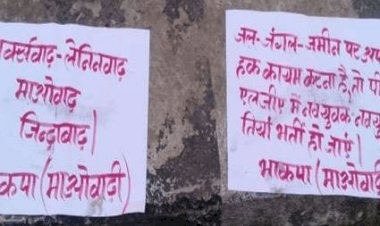 र्क्सवाद-लेनिनवाद
माओवाद
जिन्दाबाद।
कपा (माओवादी)
जल-जंगल-जमीन पर अप
हक कायम करना है, तो पी
एलजीए में नवयुवक नवयु
तियां भर्ती हो जाएं।
भाकपा (माओवा